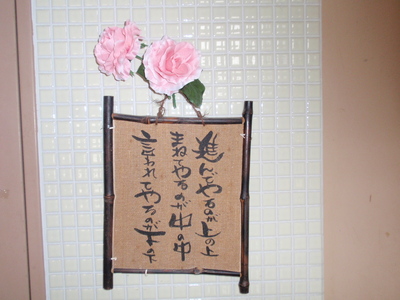 進んでやるのが上の上
まねてやるのが中の中
言われてやるのが下の下